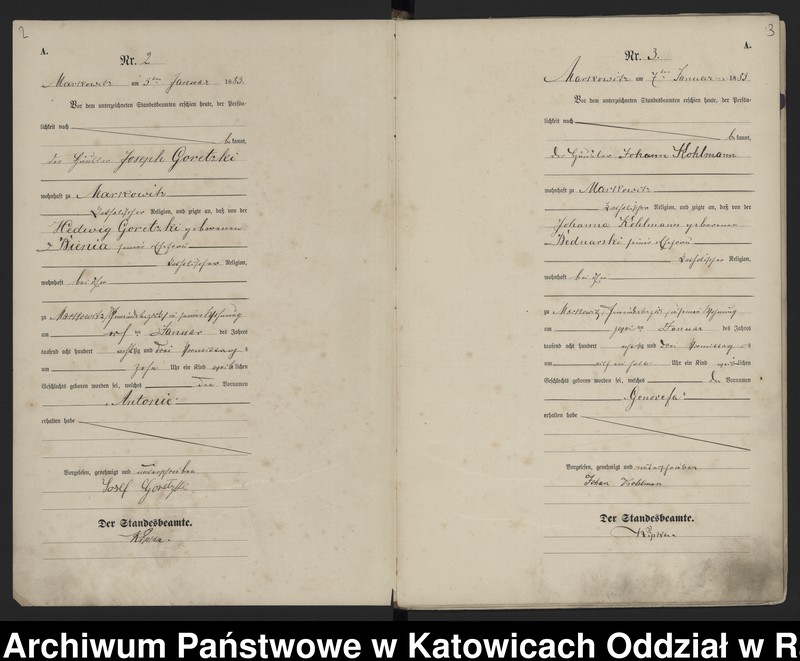 2
A.
Nr. 2
Markowitz am 5ten Januar 1883.
Vor dem unterzeichneten Standesbeamten erschien heute, der Persön-
lichkeit nach
bekannt,
der Häusler Joseph Goretzki
wohnhaft zu Markowitz
katholischer Religion, und zeigte an, daß von der
Hedwig Goretzki geborenen
Bienia seiner Ehefrau
katholischer Religion,
wohnhaft bei ihm
zu Markowitz, in seiner Wohnung
am Januar des Jahres
tausend acht hundert achtzig und drei Vormittags
um zehn Uhr ein Kind weiblichen
Geschlechts geboren worden sei, welches den Vornamen
Antonie
erhalten habe
Vorgelesen, genehmigt und unterschrieben
Josef Goretzki
Der Standesbeamte.
3
A.
Nr. 3.
Markowitz am 7ten Januar 1883.
Vor dem unterzeichneten Standesbeamten erschien heute, der Persön-
lichkeit nach
bekannt,
der Häusler Johann Kohlmann
wohnhaft zu Markowitz
katholischer Religion, und zeigte an, daß von der
Johanna Kohlmann geborenen
Bednarski seiner Ehefrau
katholischer Religion,
wohnhaft bei ihm
zu Markowitz, in seiner Wohnung
am Januar des Jahres
tausend acht hundert achtzig und drei Vormittags
um Uhr ein Kind weiblichen
Geschlechts geboren worden sei, welches den Vornamen
Genovefa
erhalten habe
Vorgelesen, genehmigt und unterschrieben
Johan Kohlman
Der Standesbeamte.
Archiwum Państwowe w Katowicach Oddział w R